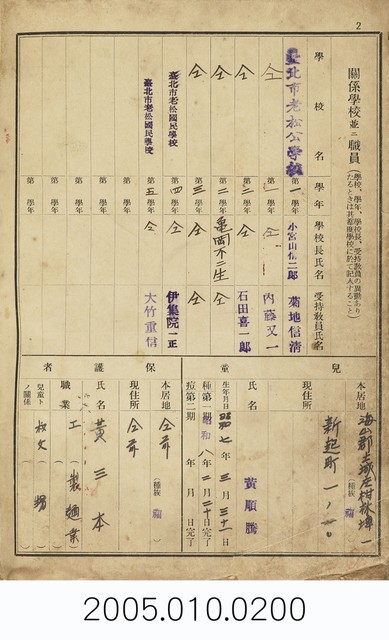 2
關係學校並ニ職員
(學校、學年、學校長、受持教員の異動ありたるときは其都度學校に於て記入すること)
學校名 學年 學校長氏名 受持教員氏名
臺北市老松公學校 第一學年 小宮山信二郎 菊地信清
仝 第一學年 仝 內藤又一
仝 第二學年 仝 石田喜一郎
仝 第二學年 龜岡不二生 仝
仝 第三學年 仝 仝
臺北市老松國民學校 第四學年 仝 伊集院一正
臺北市老松國民學校 第五學年 仝 大竹重信
第 學年
第 學年
第 學年
兒童
本居地
(種族 福)
現住所 新起町一ノ
氏名 黃順騰
生年月日 昭和七年三月三十一日
種痘 第一期 昭和八年二月二十日完了
第二期 年 月 日完了
保護者
本居地 仝前 (種族 福)
現住所 仝前
氏名 黃三本
職業 工(製麵業)
兒童トノ關係 叔父( 甥 )
2005.010.0200